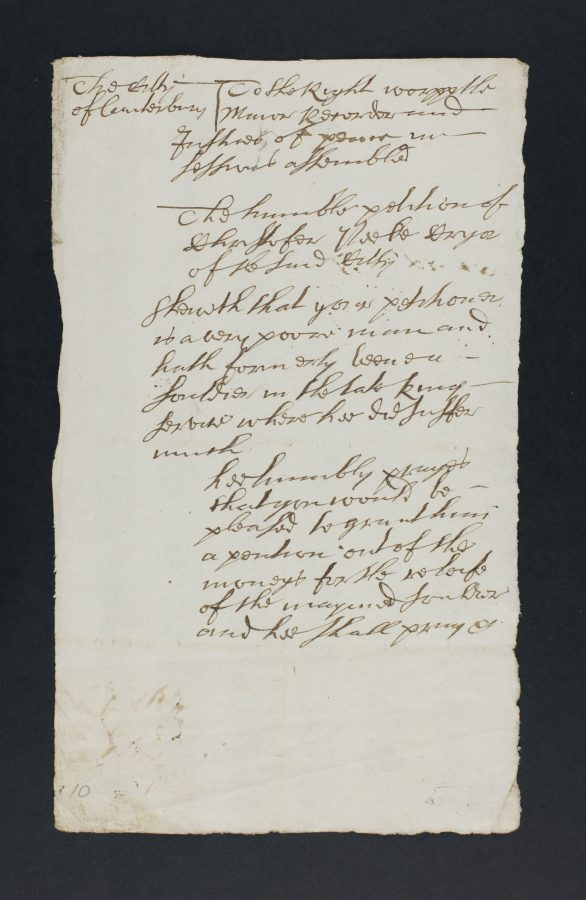 The Citty
of Canterbury
To the Right worpptle
Maior Recorder and
Justices of peace in
sessions assembled
The humble petition of
Christofer Cryer
of the said Citty
Sheweth that your petitioner
is a very poore man and
hath formerly beene a
souldier in the late kings
service where hee did suffer
much
hee humbly prayes
that you would be
pleased to grant him
a pention out of the
moneys for the releife
of the maymed souldier
and hee shall pray &
10